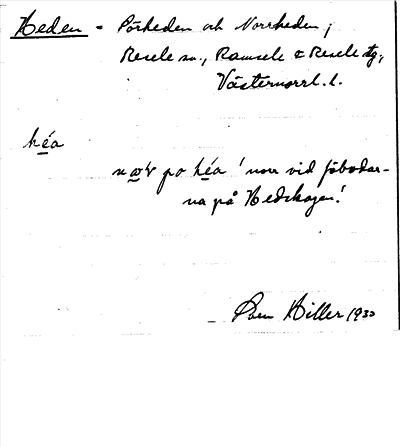 Heden = Pörheden och Norrheden,
Resele sn., Ramsele & Resele tg,
Västernorrl. l.
héa
po héa! norr vid fäbodar-
na på Hedskogen!
Hiller 1930